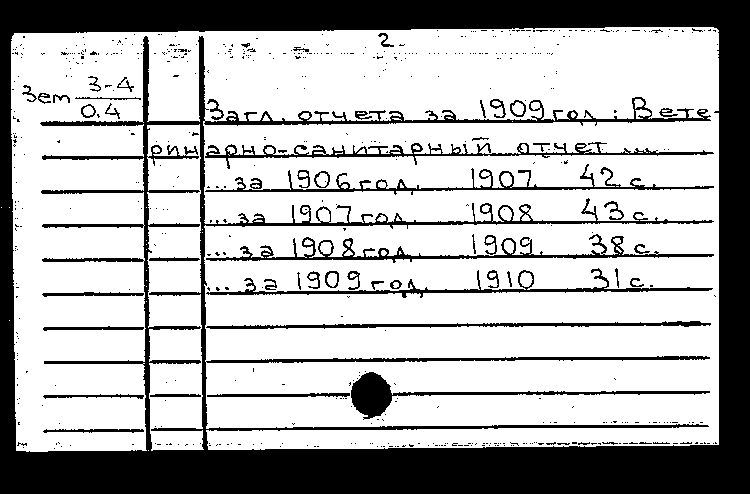 2
Зет 3-4
0.4
Загл. отчета за 1909 год : Вете-
ринарно-санитарный отчет ...
... за 1906 год. 1907. 42 с.
... за 1907 год. 1908 43 с.
... за 1908 год. 1909. 38 с.
... за 1909 год. 1910 31 с.